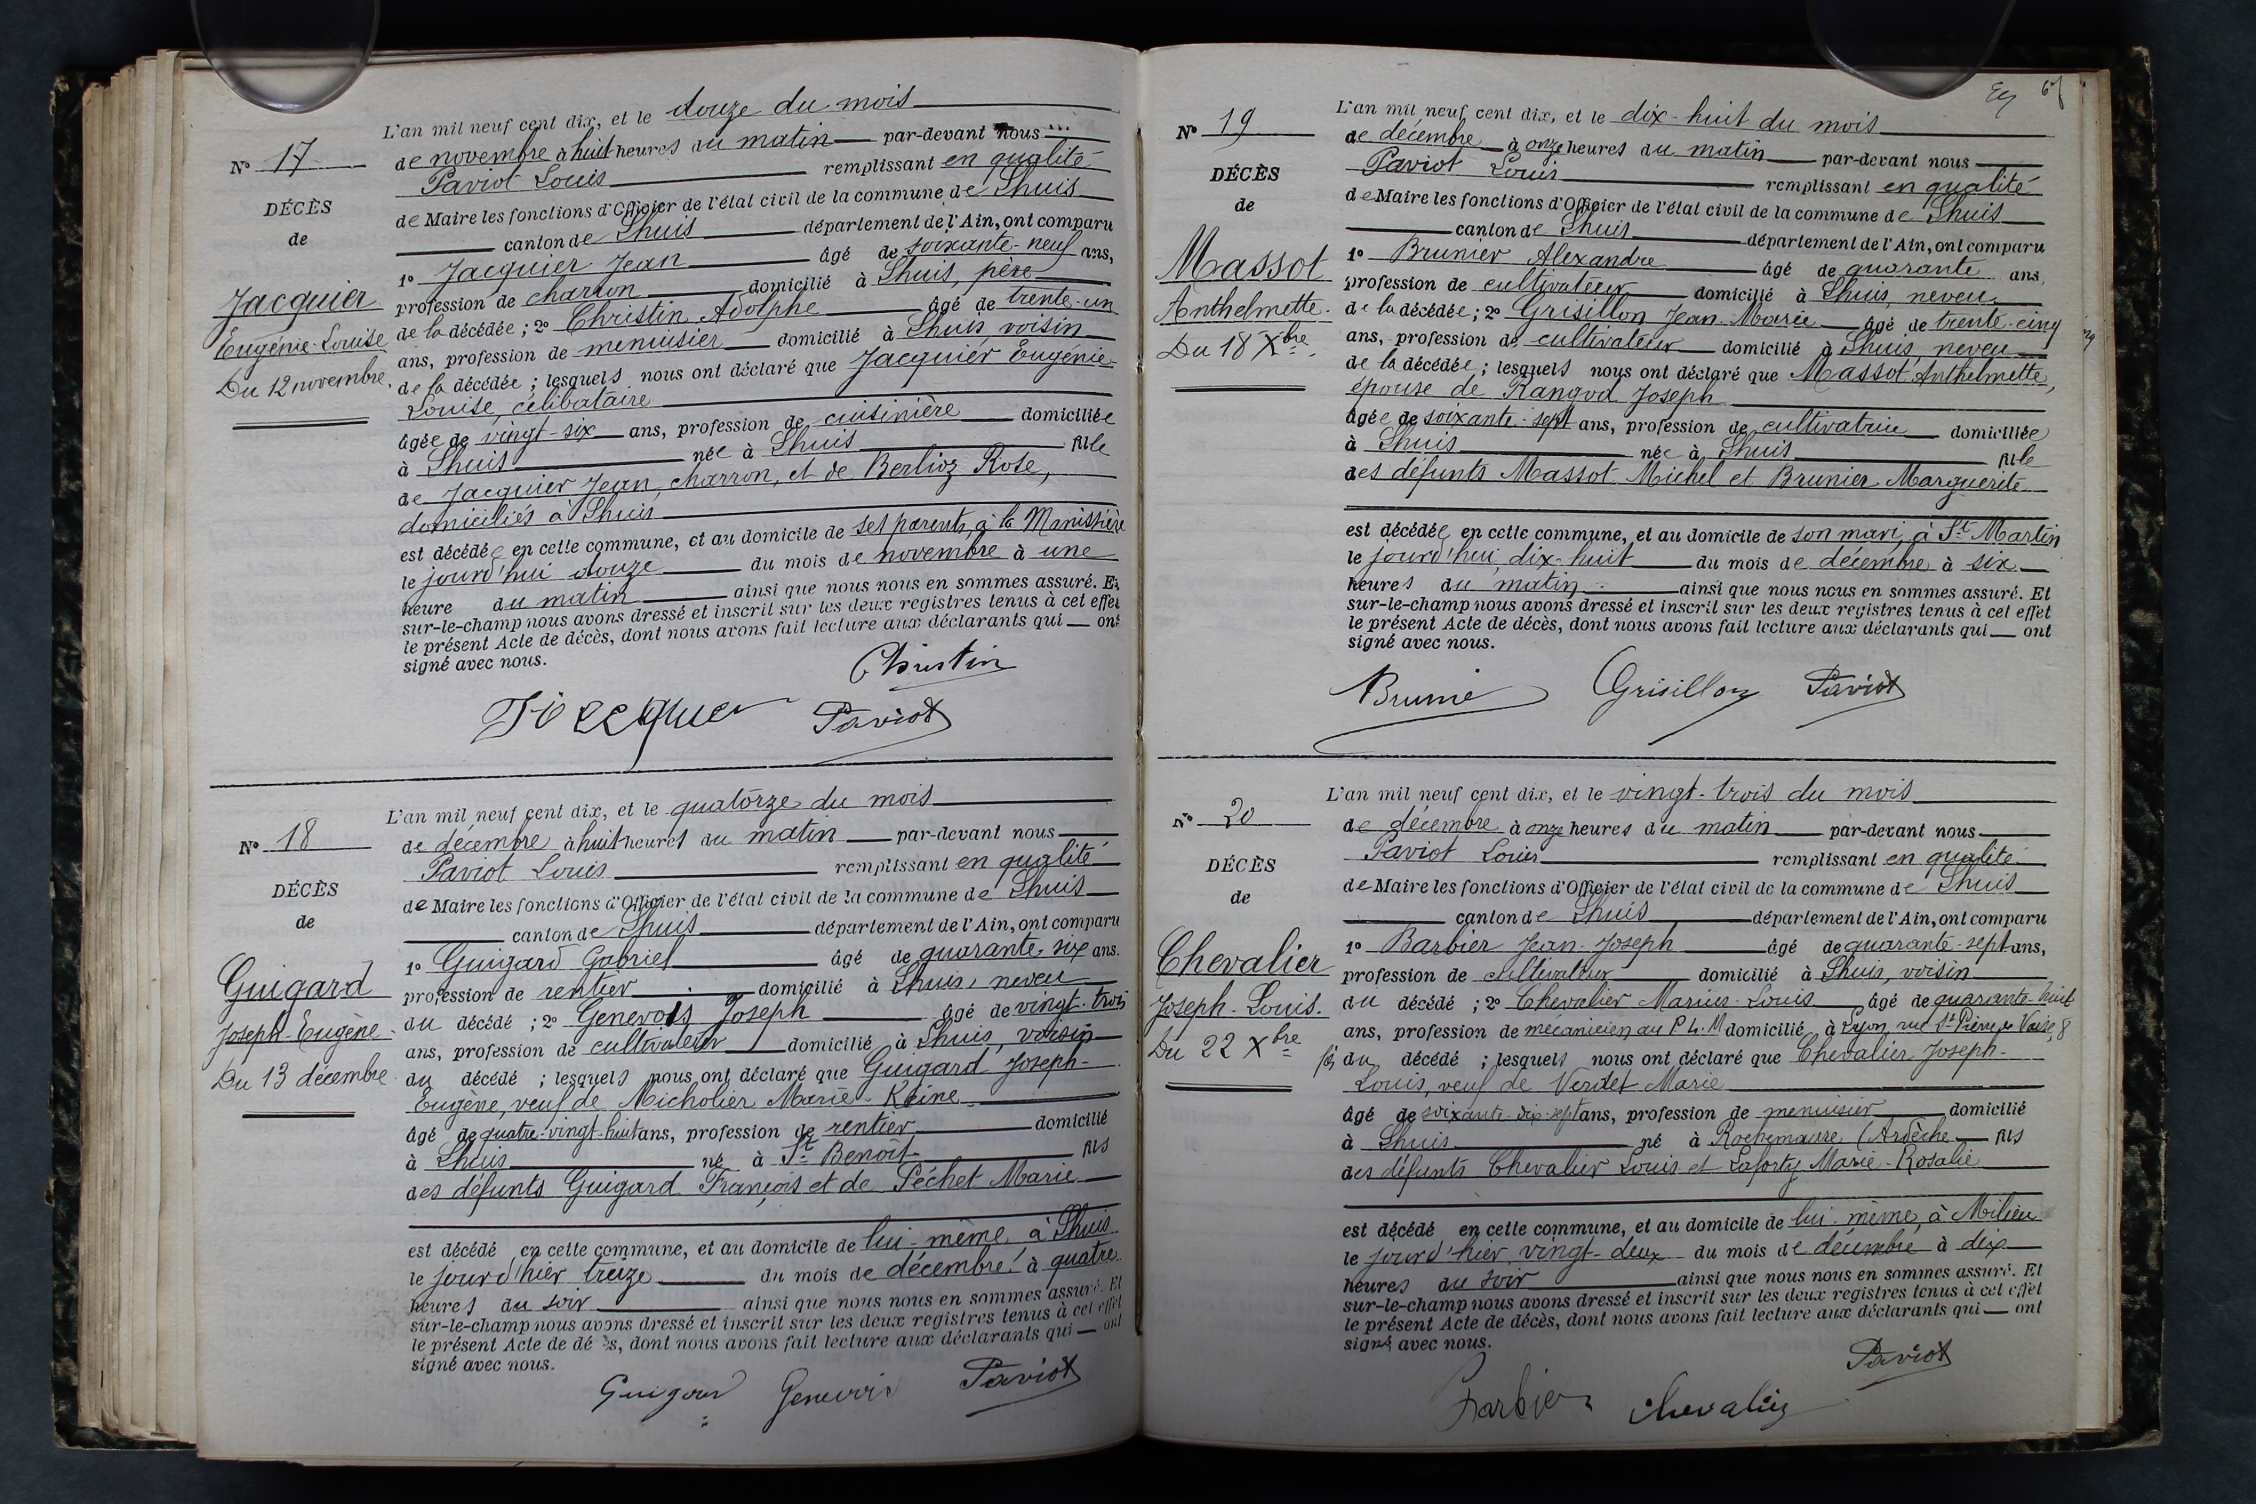 N° 17
DÉCÈS
de
Jacquier
Eugénie-Louise
Du 12 novembre.
L'an mil neuf cent dix, et le douze du mois
de novembre à huit heures du matin par-devant nous
Paviot Louis remplissant en qualité
de Maire les fonctions d'Officier de l'état civil de la commune de Lhuis
canton de Lhuis département de l'Ain, ont comparu
1° Jacquier Jean âgé de soixante-neuf ans,
profession de charron domicilié à Lhuis, père
de la décédée ; 2° Christin Adolphe âgé de trente-un
ans, profession de menuisier domicilié à Lhuis, voisin
de la décédée ; lesquels nous ont déclaré que Jacquier Eugénie-
Louise, célibataire
âgée de vingt-six ans, profession de cuisinière domiciliée
à Lhuis née à Lhuis fille
de Jacquier Jean, charron, et de Berlioz Rose,
domiciliés à Lhuis
est décédée en cette commune, et au domicile de ses parents, à la Manissière
le jourd'hui douze du mois de novembre à une
heure du matin ainsi que nous nous en sommes assuré. Et
sur-le-champ nous avons dressé et inscrit sur les deux registres tenus à cet effet
le présent Acte de décès, dont nous avons fait lecture aux déclarants qui ont
signé avec nous.
Christin
Jacquier Paviot
N° 18
DÉCÈS
de
Guigard
Joseph-Eugène
Du 13 décembre
L'an mil neuf cent dix, et le quatorze du mois
de décembre à huit heures du matin par-devant nous
Paviot Louis remplissant en qualité
de Maire les fonctions d'Officier de l'état civil de la commune de Lhuis
canton de Lhuis département de l'Ain, ont comparu
1° Guigard Gabriel âgé de quarante-six ans.
profession de rentier domicilié à Lhuis, neveu
du décédé ; 2° Genevois Joseph âgé de vingt-trois
ans, profession de cultivateur domicilié à Lhuis, voisin
du décédé ; lesquels nous ont déclaré que Guigard Joseph-
Eugène, veuf de Micholier Marie-Reine
âgé de quatre-vingt-huit ans, profession de rentier domicilié
à Lhuis né à St Benoît fils
des défunts Guigard François et de Péchet Marie
est décédé en cette commune, et au domicile de lui-même à Lhuis
le jourd'hier treize du mois de décembre à quatre
heures du soir ainsi que nous nous en sommes assuré. Et
sur-le-champ nous avons dressé et inscrit sur les deux registres tenus à cet effet
le présent Acte de décès, dont nous avons fait lecture aux déclarants qui ont
signé avec nous.
Guigard Genevois Paviot
N° 19
DÉCÈS
de
Massot
Anthelmette.
Du 18 Xbre
L'an mil neuf cent dix, et le dix-huit du mois
de décembre à onze heures du matin par-devant nous
Paviot Louis remplissant en qualité
de Maire les fonctions d'Officier de l'état civil de la commune de Lhuis
canton de Lhuis département de l'Ain, ont comparu
1° Brunier Alexandre âgé de quarante ans
profession de cultivateur domicilié à Lhuis, neveu
de la décédée ; 2° Grisillon Jean-Marie âgé de trente-cinq
ans, profession de cultivateur domicilié à Lhuis, neveu
de la décédée ; lesquels nous ont déclaré que Massot Anthelmette,
épouse de Rangod Joseph
âgée de soixante-sept ans, profession de cultivatrice domiciliée
à Lhuis née à Lhuis fille
des défunts Massot Michel et Brunier Marguerite
est décédée en cette commune, et au domicile de son mari, à St Martin
le jourd'hui dix-huit du mois de décembre à six
heures du matin ainsi que nous nous en sommes assuré. Et
sur-le-champ nous avons dressé et inscrit sur les deux registres tenus à cet effet
le présent Acte de décès, dont nous avons fait lecture aux déclarants qui ont
signé avec nous.
Brunier Grisillon Paviot
N° 20
DÉCÈS
de
Chevalier
Joseph-Louis.
Du 22 Xbre
L'an mil neuf cent dix, et le vingt-trois du mois
de décembre à onze heures du matin par-devant nous
Paviot Louis remplissant en qualité
de Maire les fonctions d'Officier de l'état civil de la commune de Lhuis
canton de Lhuis département de l'Ain, ont comparu
1° Barbier Jean-Joseph âgé de quarante-sept ans,
profession de cultivateur domicilié à Lhuis, voisin
du décédé ; 2° Chevalier Marius-Louis âgé de quarante-huit
ans, profession de mécanicien au P. L. M domicilié à Lyon, rue St Pierre de Vaise, 8
fils du décédé ; lesquels nous ont déclaré que Chevalier Joseph-
Louis, veuf de Verdet Marie
âgé de soixante-dix-sept ans, profession de menuisier domicilié
à Lhuis né à Rochemaure (Ardèche fils
des défunts Chevalier Louis et Laforty Marie-Rosalie
est décédé en cette commune, et au domicile de lui-même, à Milieu
le jourd'hier vingt-deux du mois de décembre à dix
heures du soir ainsi que nous nous en sommes assuré. Et
sur-le-champ nous avons dressé et inscrit sur les deux registres tenus à cet effet
le présent Acte de décès, dont nous avons fait lecture aux déclarants qui ont
signé avec nous.
Paviot
Barbier Chevalier